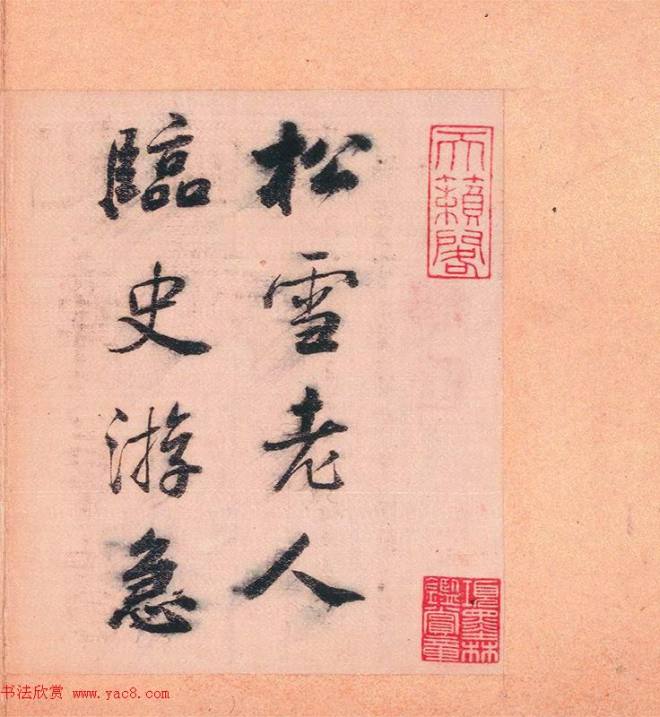 松雪老人
臨史游急
天籟閣
項墨林鑑賞章
书法欣赏 www.yac8.com